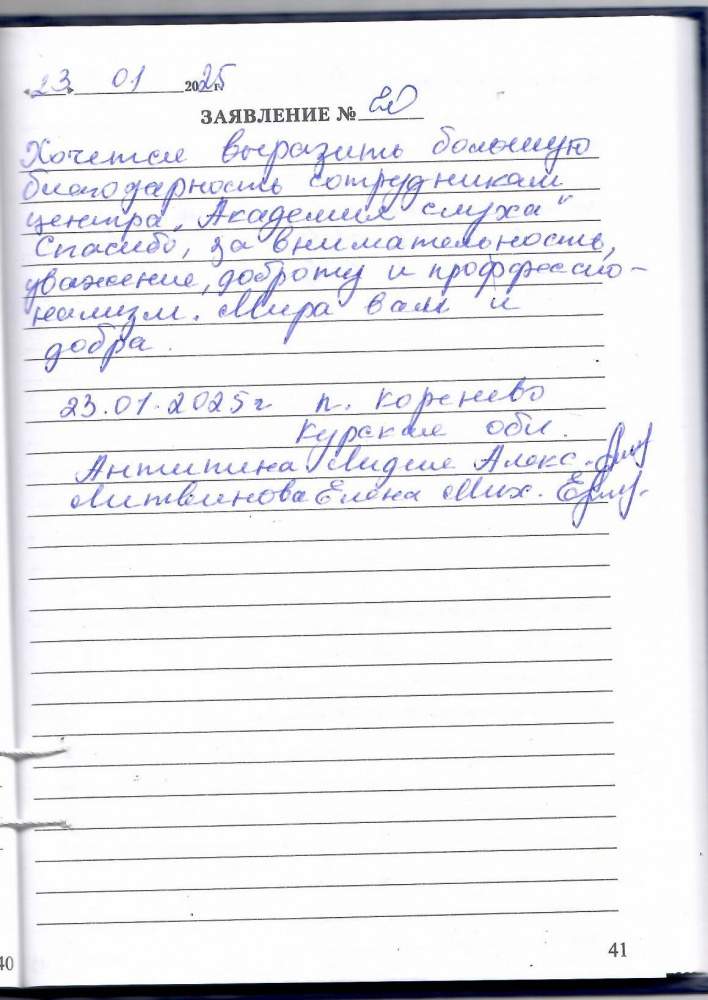 «23» 01 2025 г.
ЗАЯВЛЕНИЕ №
Хочется выразить большую
благодарность сотрудникам
центра „Академия слуха"
Спасибо, за внимательность,
уважение, доброту и проффессио-
нализм. Мира вам и
добра.
23.01.2025г п. Коренево
Курская обл.
Антипина Лидия Алекс.
Литвинова Елена Мих.
40
41